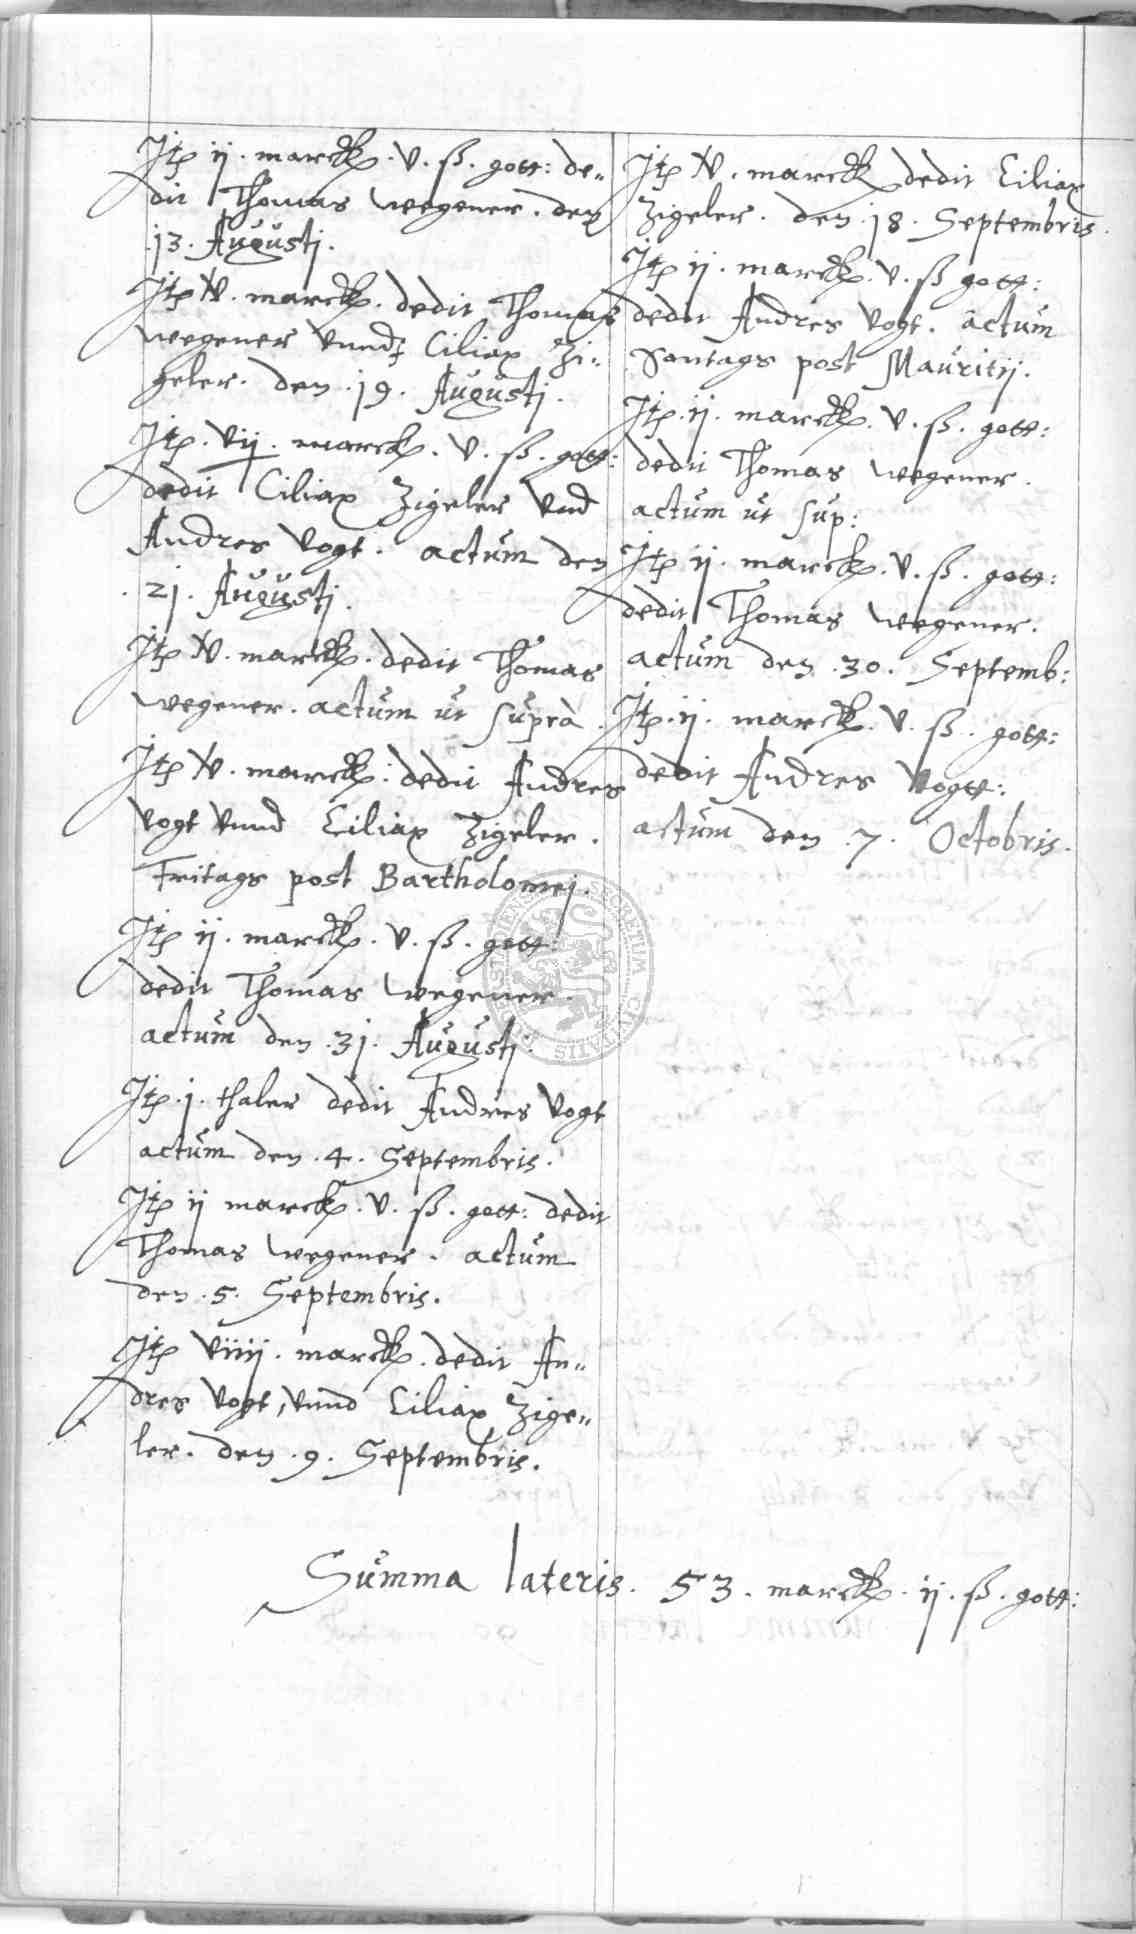 Jtp ij. marck. v. ß. gott: de„
dit Thomas wegener. den
.13. Augustj.
Jtp v. marck. dedit Thomas
wegener vnnd Ciliax Zi„
geler. den .19. Augustj.
Jtp. vij. marck. v. ß. gott:
dedit Ciliax Zigeler vnd
Andres Vogt. actum den
.21. Augustj.
Jtp v. marck. dedit Thomas
wegener. actum ut suprà.
Jtp v. marck. dedit Andres
Vogt vnnd Ciliax Zigeler.
Fritags post Bartholomej.
Jtp ij. marck. v. ß. gott:
dedit Thomas wegener.
actum den .31. Augustj.
Jtp. j. thaler dedit Andres Vogt
actum den .4. Septembris.
Jtp ij marck. v. ß. gott: dedit
Thomas wegener. actum
den .5. Septembris.
Jtp viiij. marck. dedit An„
dres Vogt, vnnd Ciliax Zige„
ler. den .9. Septembris.
Jtp v. marck dedit Ciliax
Zigeler. den .18. Septembris.
Jtp ij. marck. v. ß gott:
dedit Andres Vogt. actum
Sontags post Mauritij.
Jtp. ij. marck. v. ß. gott:
dedit Thomas wegener.
actum ut sup:
Jtp ij. marck. v. ß. gott:
dedit Thomas wegener.
actum den .30. Septemb:
Jtp. ij. marck. v. ß. gott:
dedit Andres Vogtt:
actum den .7. Octobris.
Summa lateris. 53. marck. ij. ß. gott:
SECRETUM CIVITATIS